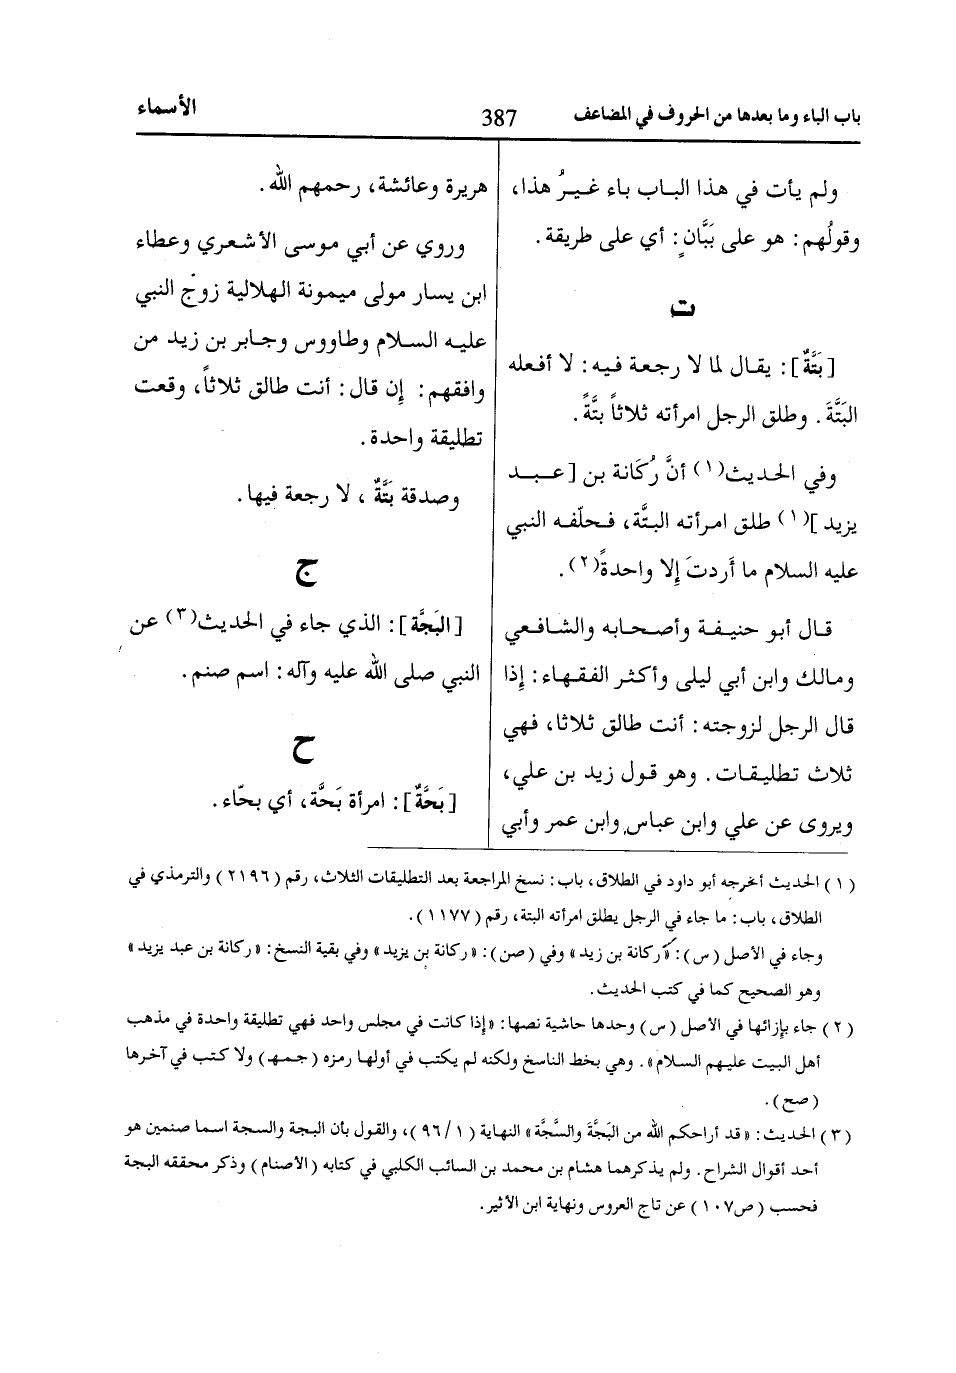 باب الباء وما بعدها من الحروف في المضاعف
387
الأسماء
ولم يأت في هذا الباب باء غيرُ هذا،
وقولُهم: هو على بَبَّانٍ: أي على طريقة.
ت
[بَتَّةٌ]: يقال لما لا رجعة فيه: لا أفعله
البَتَّةَ. وطلق الرجل امرأته ثلاثاً بتَّةً.
وفي الحديث(١) أنَّ رُكَانة بن [عبد
يزيد](١) طلق امرأته البتَّة، فحلّفه النبي
عليه السلام ما أَردتَ إِلا واحدةً(٢).
قال أبو حنيفة وأصحابه والشافعي
ومالك وابن أبي ليلى وأكثر الفقهاء: إِذا
قال الرجل لزوجته: أنت طالق ثلاثا، فهي
ثلاث تطليقات. وهو قول زيد بن علي،
ويروى عن علي وابن عباس وابن عمر وأبي
هريرة وعائشة، رحمهم الله.
وروي عن أبي موسى الأشعري وعطاء
ابن يسار مولى ميمونة الهلالية زوج النبي
عليه السلام وطاووس وجابر بن زيد من
وافقهم: إِن قال: أنت طالق ثلاثاً، وقعت
تطليقة واحدة.
وصدقة بَتَّةٌ، لا رجعة فيها.
ج
[البَجَّة]: الذي جاء في الحديث(٣) عن
النبي صلى الله عليه وآله: اسم صنم.
ح
[بَحَّةٌ]: امرأة بَحَّة، أي بحّاء.
(١) الحديث أخرجه أبو داود في الطلاق، باب: نسخ المراجعة بعد التطليقات الثلاث، رقم (٢١٩٦) والترمذي في
الطلاق، باب: ما جاء في الرجل يطلق امرأته البتة، رقم (١١٧٧).
وجاء في الأصل (س): «ركانة بن زيد» وفي (صن): «ركانة بن يزيد» وفي بقية النسخ: «ركانة بن عبد يزيد»
وهو الصحيح كما في كتب الحديث.
(٢) جاء بإزائها في الأصل (س) وحدها حاشية نصها: «إذا كانت في مجلس واحد فهي تطليقة واحدة في مذهب
أهل البيت عليهم السلام». وهي بخط الناسخ ولكنه لم يكتب في أولها رمزه (جمهـ) ولا كتب في آخرها
(صح).
(٣) الحديث: «قد أراحكم الله من البَجَّةَ والسَّجَّة» النهاية (١/٩٦)، والقول بأن البجة والسجة اسما صنمين هو
أحد أقوال الشراح. ولم يذكرهما هشام بن محمد بن السائب الكلبي في كتابه (الأصنام) وذكر محققه البجة
فحسب (ص١٠٧) عن تاج العروس ونهاية ابن الأثير.